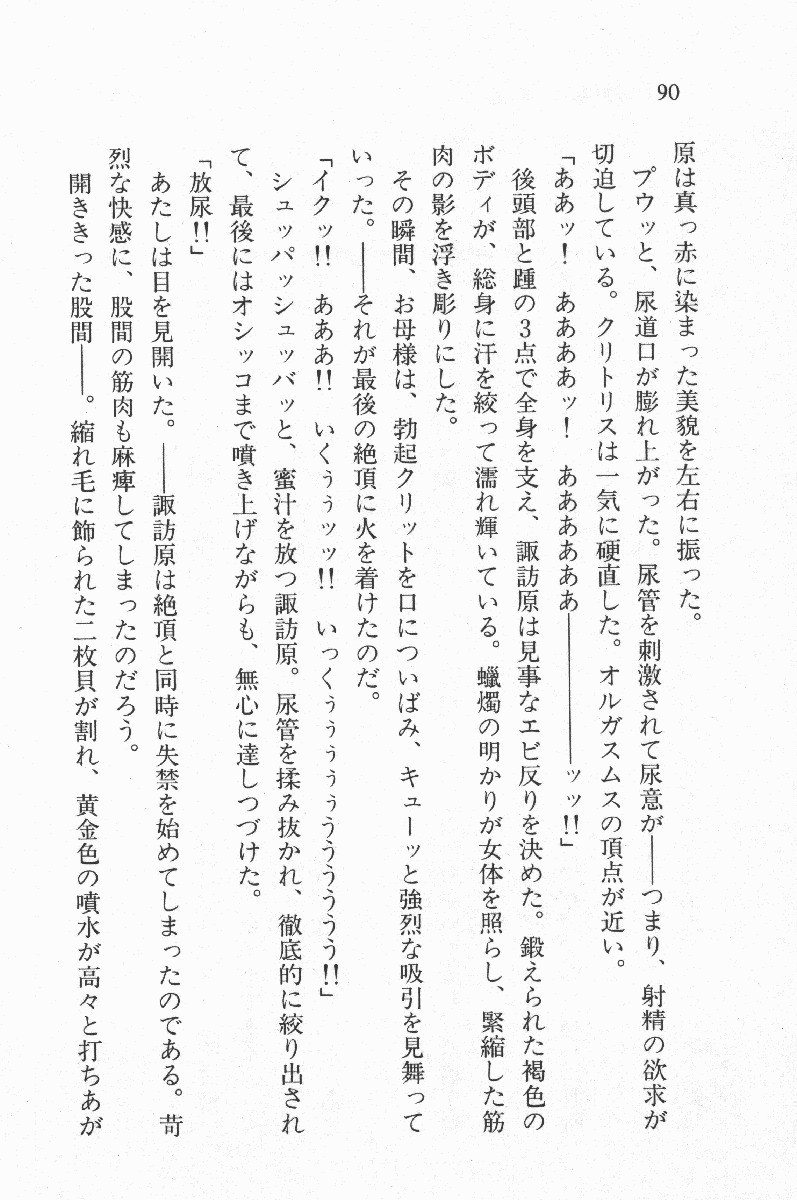 90
原は真っ赤に染まった美貌を左右に振った。
プウッと、尿道口が膨れ上がった。尿管を刺激されて尿意が――つまり、射精の欲求が
切迫している。クリトリスは一気に硬直した。オルガスムスの頂点が近い。
「ああッ！　ああああッ！　ああああああ――――――ッッ!!」
後頭部と踵の3点で全身を支え、諏訪原は見事なエビ反りを決めた。鍛えられた褐色の
ボディが、総身に汗を絞って濡れ輝いている。蠟燭の明かりが女体を照らし、緊縮した筋
肉の影を浮き彫りにした。
その瞬間、お母様は、勃起クリットを口についばみ、キューッと強烈な吸引を見舞って
いった。――それが最後の絶頂に火を着けたのだ。
「イクッ!!　あああ!!　いくぅぅッッ!!　いっくぅぅぅぅぅうううううう!!」
シュッパッシュッバッと、蜜汁を放つ諏訪原。尿管を揉み抜かれ、徹底的に絞り出され
て、最後にはオシッコまで噴き上げながらも、無心に達しつづけた。
「放尿!!」
あたしは目を見開いた。――諏訪原は絶頂と同時に失禁を始めてしまったのである。苛
烈な快感に、股間の筋肉も麻痺してしまったのだろう。
開ききった股間――。縮れ毛に飾られた二枚貝が割れ、黄金色の噴水が高々と打ちあが